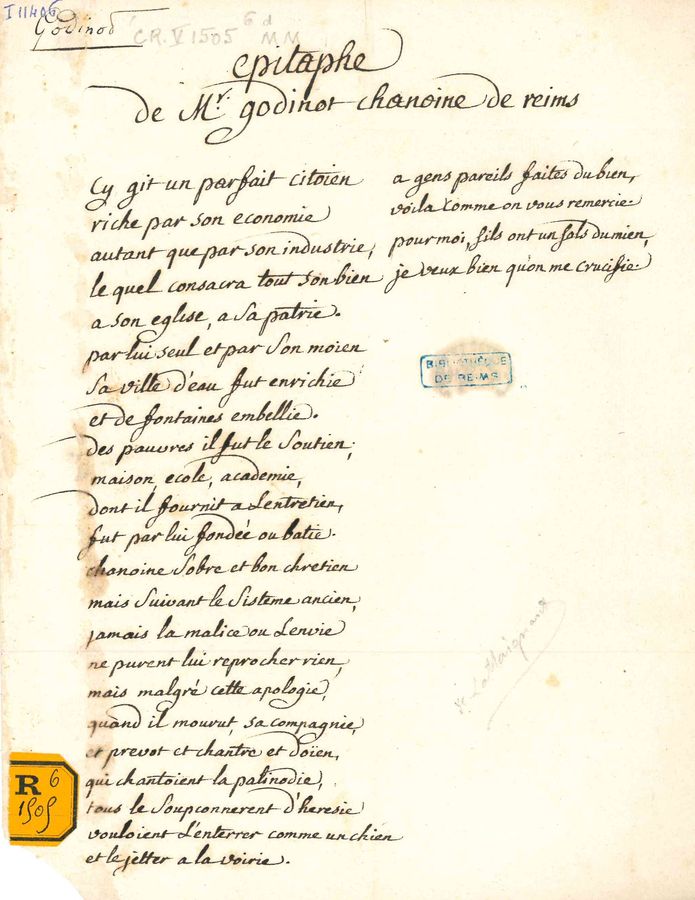 I 11406
Godinot
CR. V 1505 6 d
MM
epitaphe
de Mr. godinot chanoine de reims
Cy git un parfait citoien
riche par son economie
autant que par son industrie,
le quel consacra tout son bien
a son eglise, a sa patrie.
par lui seul et par son moien
sa ville d'eau fut enrichie
et de fontaines embellie.
des pauvres il fut le soutien;
maison, ecole, academie,
dont il fournit a Lentretien,
fut par lui fondée ou batie.
chanoine sobre et bon chretien
mais suivant le sisteme ancien,
jamais la malice ou Lenvie
ne purent lui reprocher rien,
mais malgré cette apologie,
quand il mourut, sa compagnie,
et prevot et chantre et doïen,
qui chantoient la palinodie,
tous le soupconnerent d'heresie
vouloient L'enterrer comme un chien
et le jetter a la voirie.
a gens pareils faites du bien,
voila comme on vous remercie.
pour moi, s'ils ont un sols du mien,
je veux bien qu'on me crucifie.
BIBLIOTHÈQUE
DE REIMS
R 6
1505